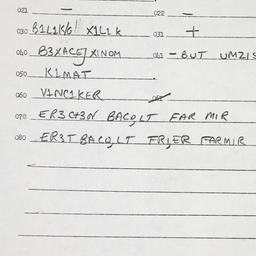 021 — 022 —
030 B1L1K/G// X1LLK 031 +
040 B3XACEJ XINOM 041 - BUT UMZIS
050 K1MAT
060 V1NC1KER
070 ER3C+3N BACO,LT FAR MIR
080 ER3T BACO,LT FRJER FARMIR